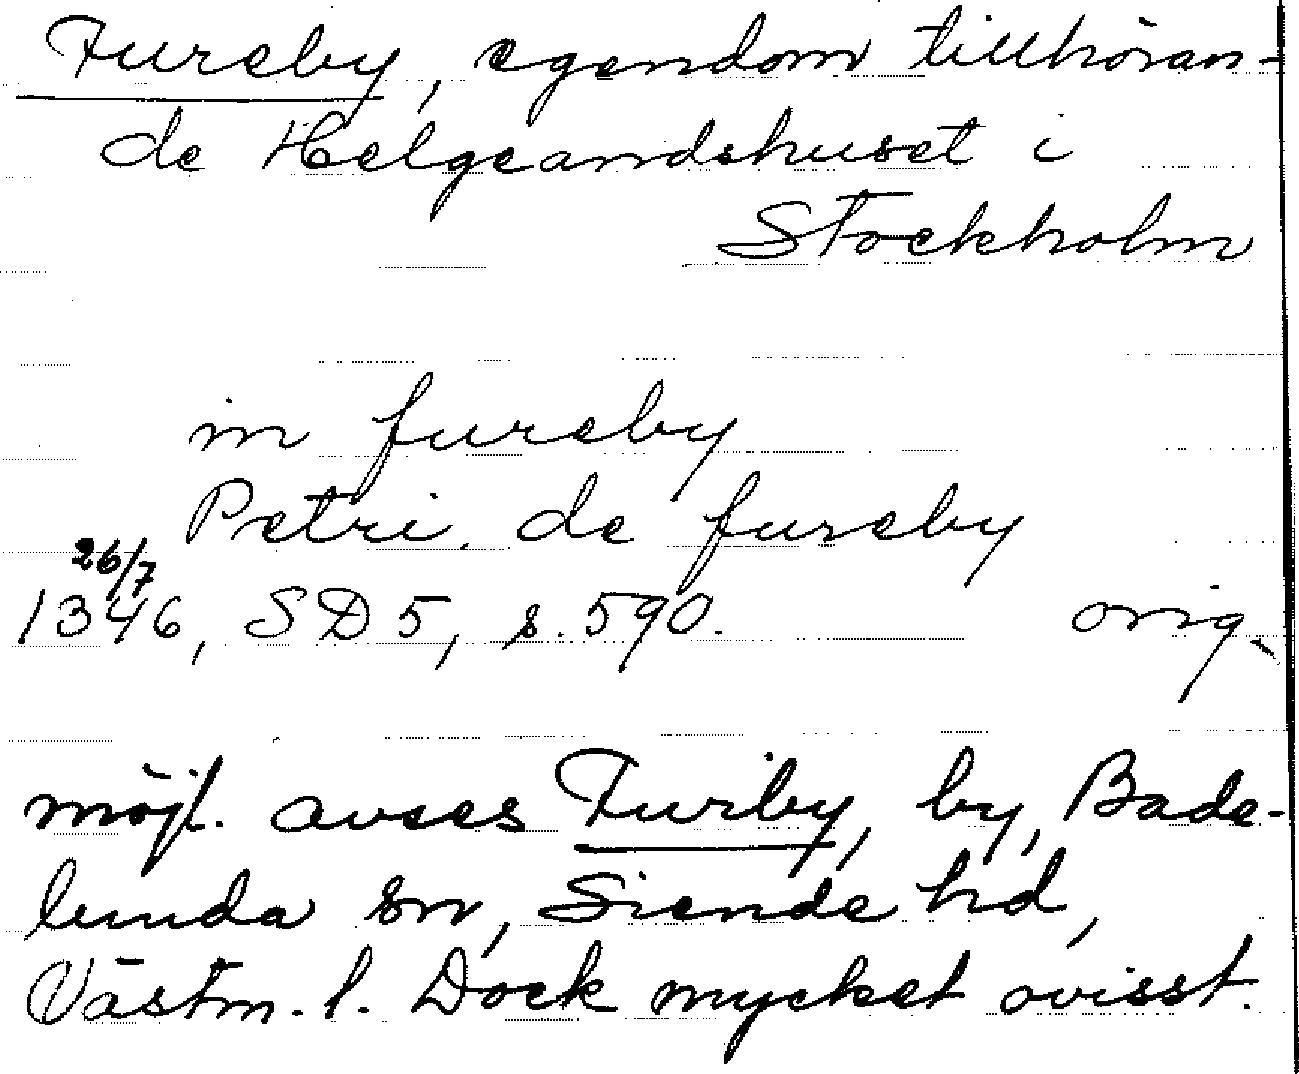 Fureby, egendom tillhöran-
de Helgeandshuset i
Stockholm
in fureby
Petri de fureby
26/7
1346, SD 5, s. 590. orig.
möjl. avses Furby, by, Bade-
lunda sn, Siende hd,
Västm. l. Dock mycket ovisst.